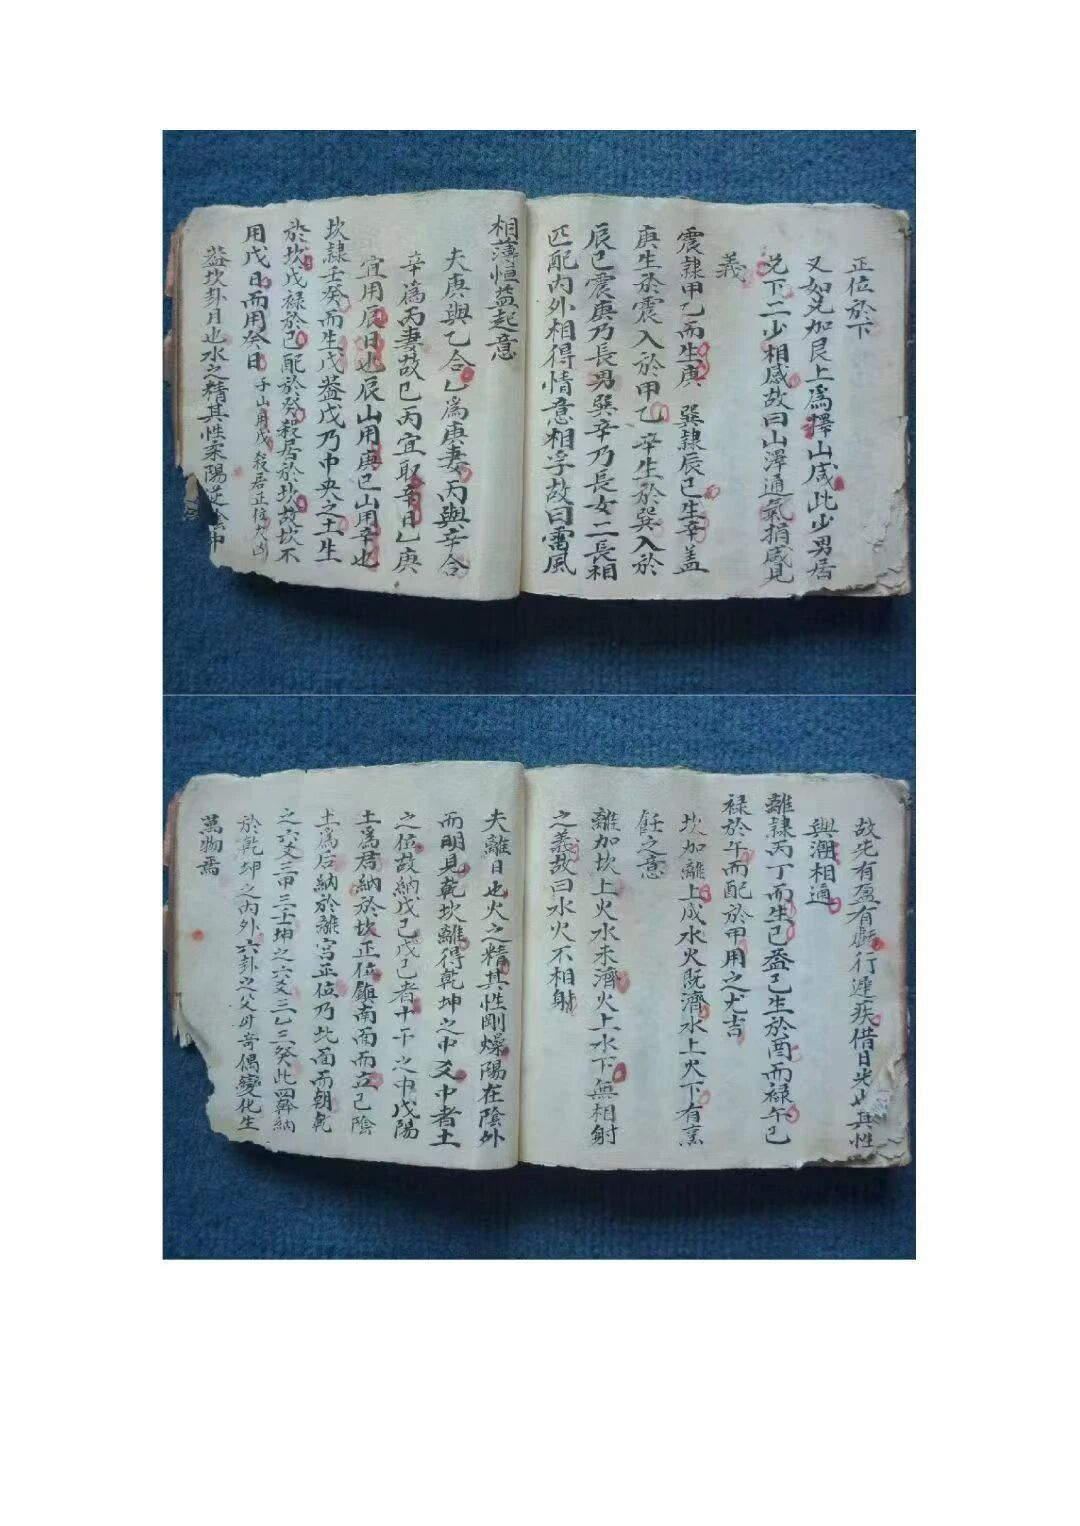 正位於下
又如兌加艮上為擇山咸此少男居
兌下二少相感故曰山澤通氣損咸見
義
震隷甲乙而生庚 巽隷辰巳生辛盖
庚生於震入於甲乙辛生於巽入於
辰巳震庚乃長男巽辛乃長女二長相
匹配内外相得情意相孚故曰雷風
相薄恒益起意
夫庚與乙合乙為庚妻丙與辛合
辛為丙妻故巳丙宜取辛日乙庚
宜用辰日也辰山用庚巳山用辛也
坎隷壬癸而生戊葢戊乃中央之土生
於坎戊禄於巳配於癸殺居於坎故坎不
用戊日而用癸日 子山用戊殺居正位大凶
葢坎卦月也水之精其性柔陽 陰中
故先有盈有虧行遲疾借日光 其性
與潮相通
離隷丙丁而生己葢己生於酉而禄午己
禄於午而配於甲用之尤吉
坎加離上成水火既濟水上火下有烹
飪之意
離加坎上火水未濟火上水下無相射
之義故曰水火不相射
夫離日也火之精其性剛燥陽在陰外
而明見乾坎離得乾坤之中爻中者土
之位故納戊己戊己者十干之中戊陽
土為君納於坎正位鎮南面而立己陰
土為后納於離宫正位乃北面而朝乾
之六爻三甲三壬坤之六爻三乙三癸此四幹納
於乾坤之内外六卦之父母竒偶變化生
萬物焉